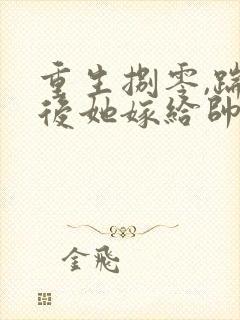 重生捌零,踹
後她嫁給帥
金飛